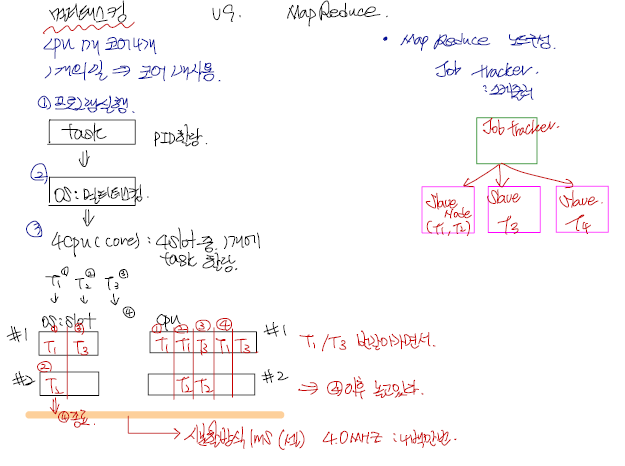 멀티태스킹 vs. MapReduce.
CPU 1개 코어4개
1개의일 ⇒ 코어 1개사용.
① 프로그램실행.
task PID할당.
②
OS : 멀티태스킹.
③ 4cpu(core) : 4slot 중 1개에
task 할당.
T1① T2② T3③
OS : slot ④ cpu
#1 ① T1 ③ T3
#2 ② T2
④종료.
① T1 ② T1 ③ T3 ④ T1 T3 #1
T2 T2 #2
T1/T3 번갈아가면서.
⇒ ④이후 놀고있다.
→ 시분할방식 1ms (셀) 4.0MHZ : 4백만번.
• MapReduce
Job tracker.
: 스케줄러
Job tracker.
Slave Node (T1, T2)
Slave T3
Slave T4